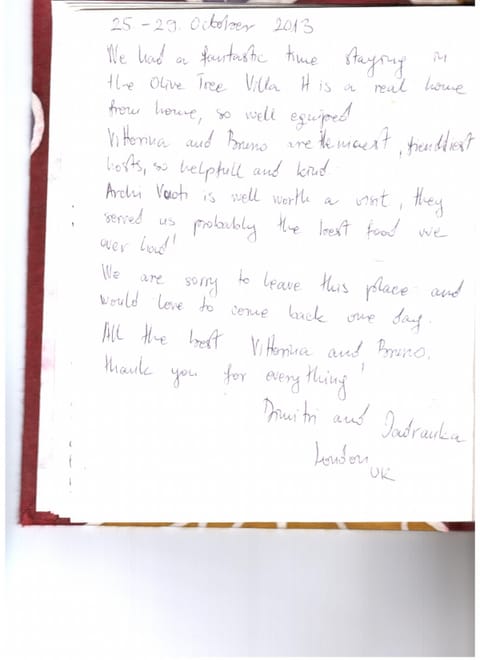 25 - 29. October 2013
We had a fantastic time staying in
the Olive Tree Villa It is a real home
from home, so well equiped
Vittorina and Bruno are the nicest, friendliest
hosts, so helpfull and kind.
Archi is well worth a visit, they
served us probably the best food we
ever had!
We are sorry to leave this place and
would love to come back one day.
All the best Vittorina and Bruno,
thank you for everything!
Dimitri and Jadranka
London
UK